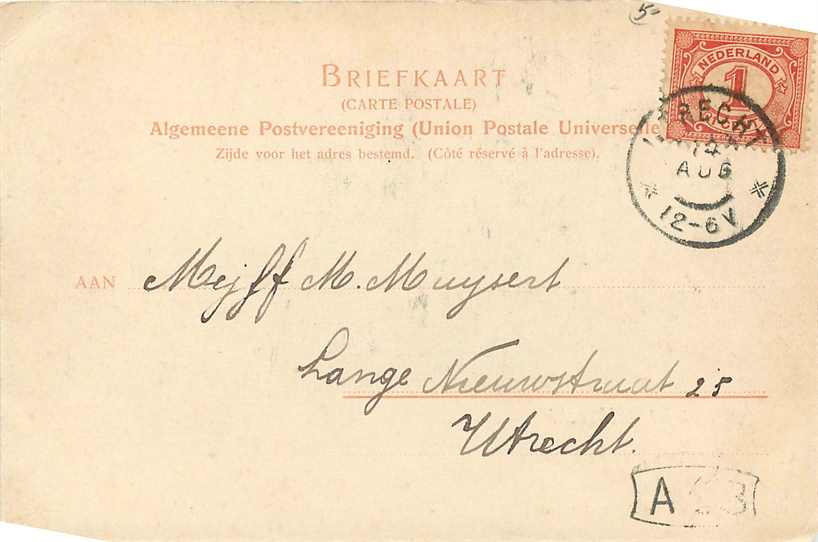 5-
NEDERLAND
1
BRIEFKAART
(CARTE POSTALE)
Algemeene Postvereeniging (Union Postale Universelle)
Zijde voor het adres bestemd. (Côté réservé à l'adresse).
UTRECHT
14
AUG
12-6V
AAN Mejff M. Muysert
Lange Nieuwstraat 25
Utrecht.
A